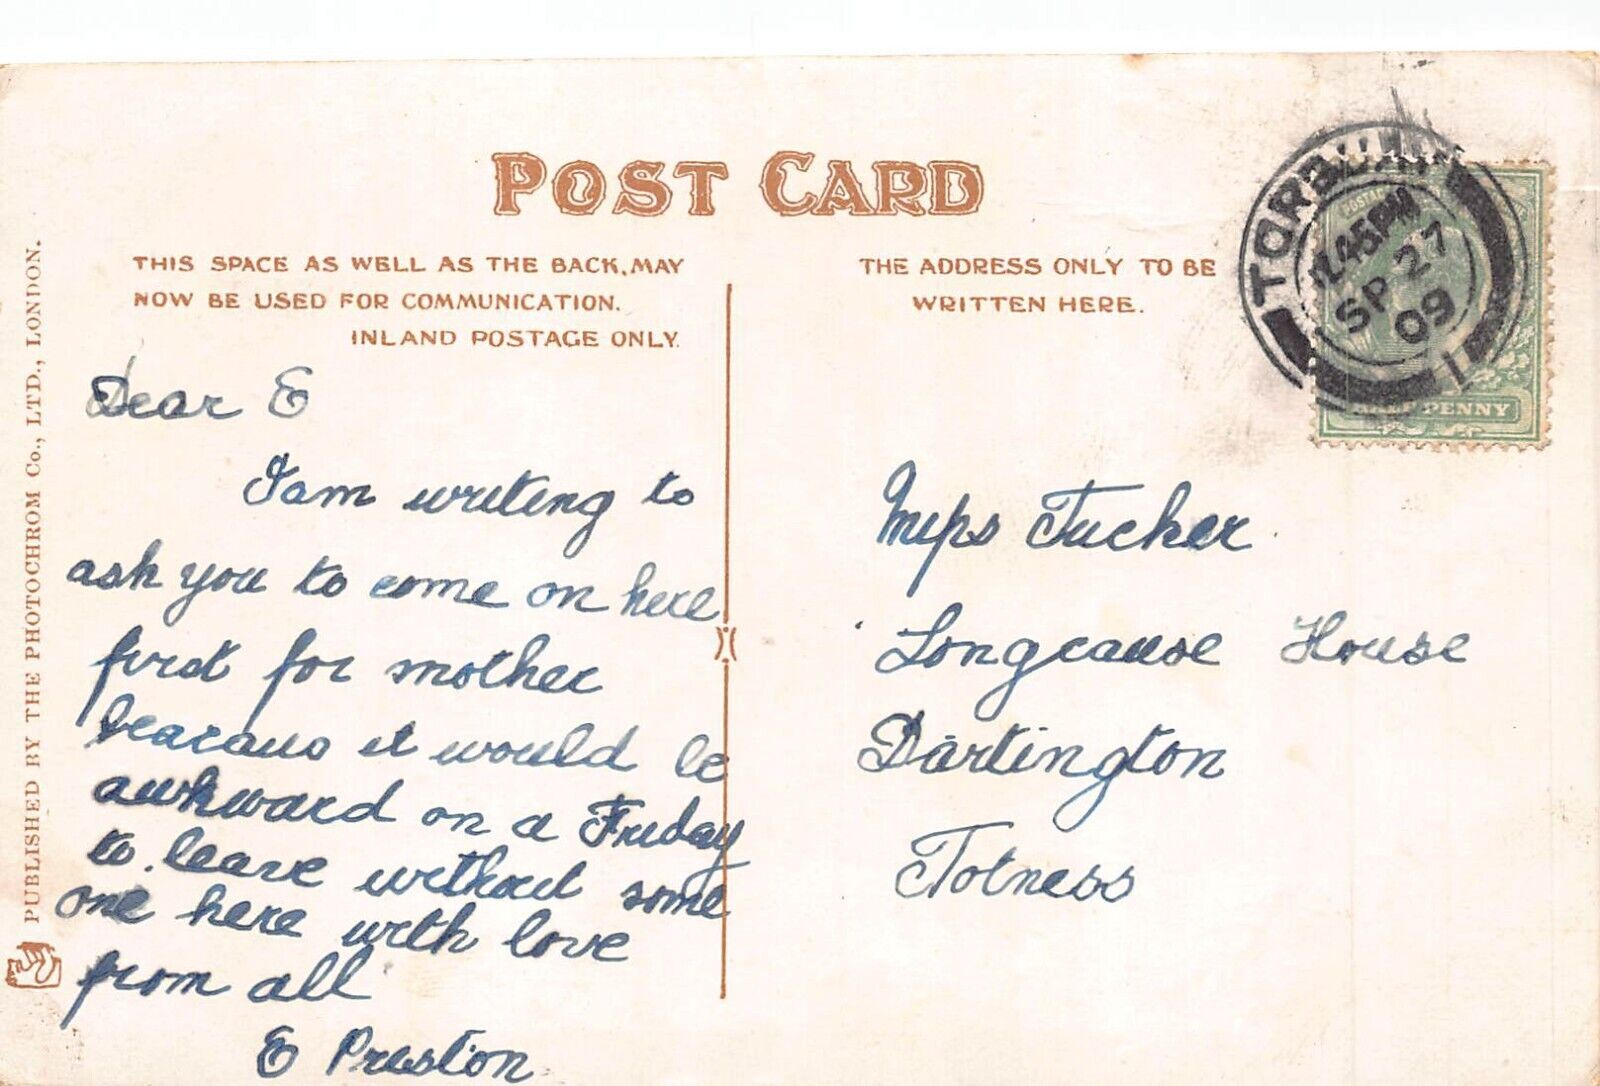 POST CARD
THIS SPACE AS WELL AS THE BACK, MAY
NOW BE USED FOR COMMUNICATION.
INLAND POSTAGE ONLY.
THE ADDRESS ONLY TO BE
WRITTEN HERE.
PUBLISHED BY THE PHOTOCHROM Co., LTD., LONDON.
Dear E
I am writing to
ask you to come on here
first for mother
it would be
awkward on a Friday
to leave without some
one here with love
from all
E Preston
12.45 PM
SP 27
09
1
HALF PENNY
Miss Tucker
Longcause House
Dartington
Totness